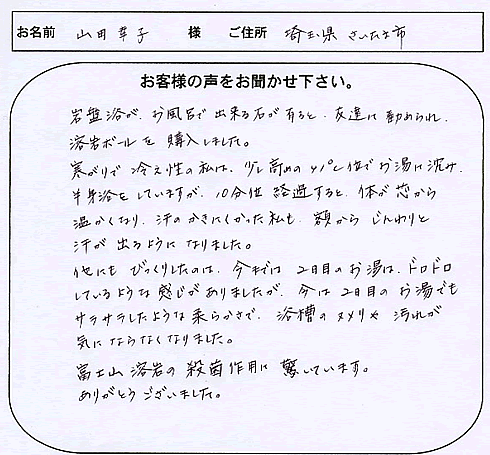 お名前 山田幸子 様 ご住所 埼玉県 さいたま市
お客様の声をお聞かせ下さい。
岩盤浴が、お風呂で出来る石が有ると、友達に勧められ、
溶岩ボールを購入しました。
寒がりで冷え性の私は、少し高めの41℃位でお湯に沈み、
半身浴をしていますが、10分位経過すると、体が芯から
温かくなり、汗のかきにくかった私も、額からじんわりと
汗が出るようになりました。
他にもびっくりしたのは、今までは2日目のお湯は、ドロドロ
しているような感じがありましたが、今は2日目のお湯でも
サラサラしたような柔らかさで、浴槽のヌメリや汚れが
気にならなくなりました。
富士山溶岩の殺菌作用に驚いています。
ありがとうございました。